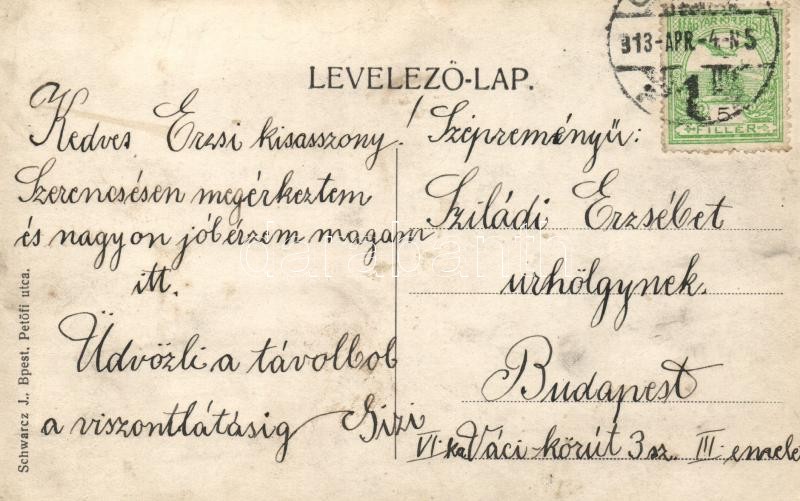 LEVELEZŐ-LAP.
Kedves Erzsi kisasszony!
Szerencsésen megérkeztem
és nagyon jól érzem magam
itt.
Üdvözli a távolból
a viszontlátásig Gizi
Szépreményű:
Sziládi Erzsébet
urhölgynek.
Budapest
VI. ker Váci-körút 3 sz. III. emelet
Schwarcz J., Bpest, Petőfi utca.
913-APR.-4-N5
MAGYAR KIR. POSTA
5
FILLÉR
darabanth